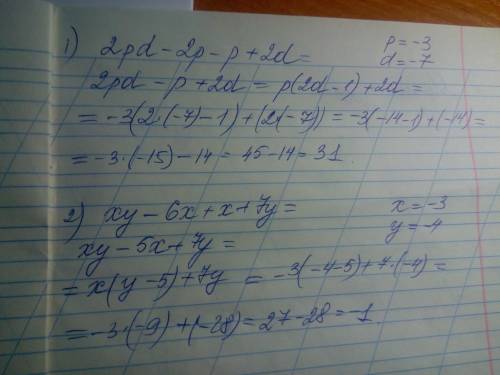 1) 2pd - 2p - p + 2d =    p = -3
d = -7
2pd - p + 2d = p(2d-1) + 2d =
= -3(2·(-7)-1) + (2(-7)) = -3(-14-1) + (-14) =
= -3·(-15) - 14 = 45 - 14 = 31.
2) xy - 6x + x + 7y =    x = -3
y = -4
xy - 5x + 7y =
= x(y-5) + 7y = -3(-4-5) + 7·(-4) =
= -3·(-9) + (-28) = 27 - 28 = -1.